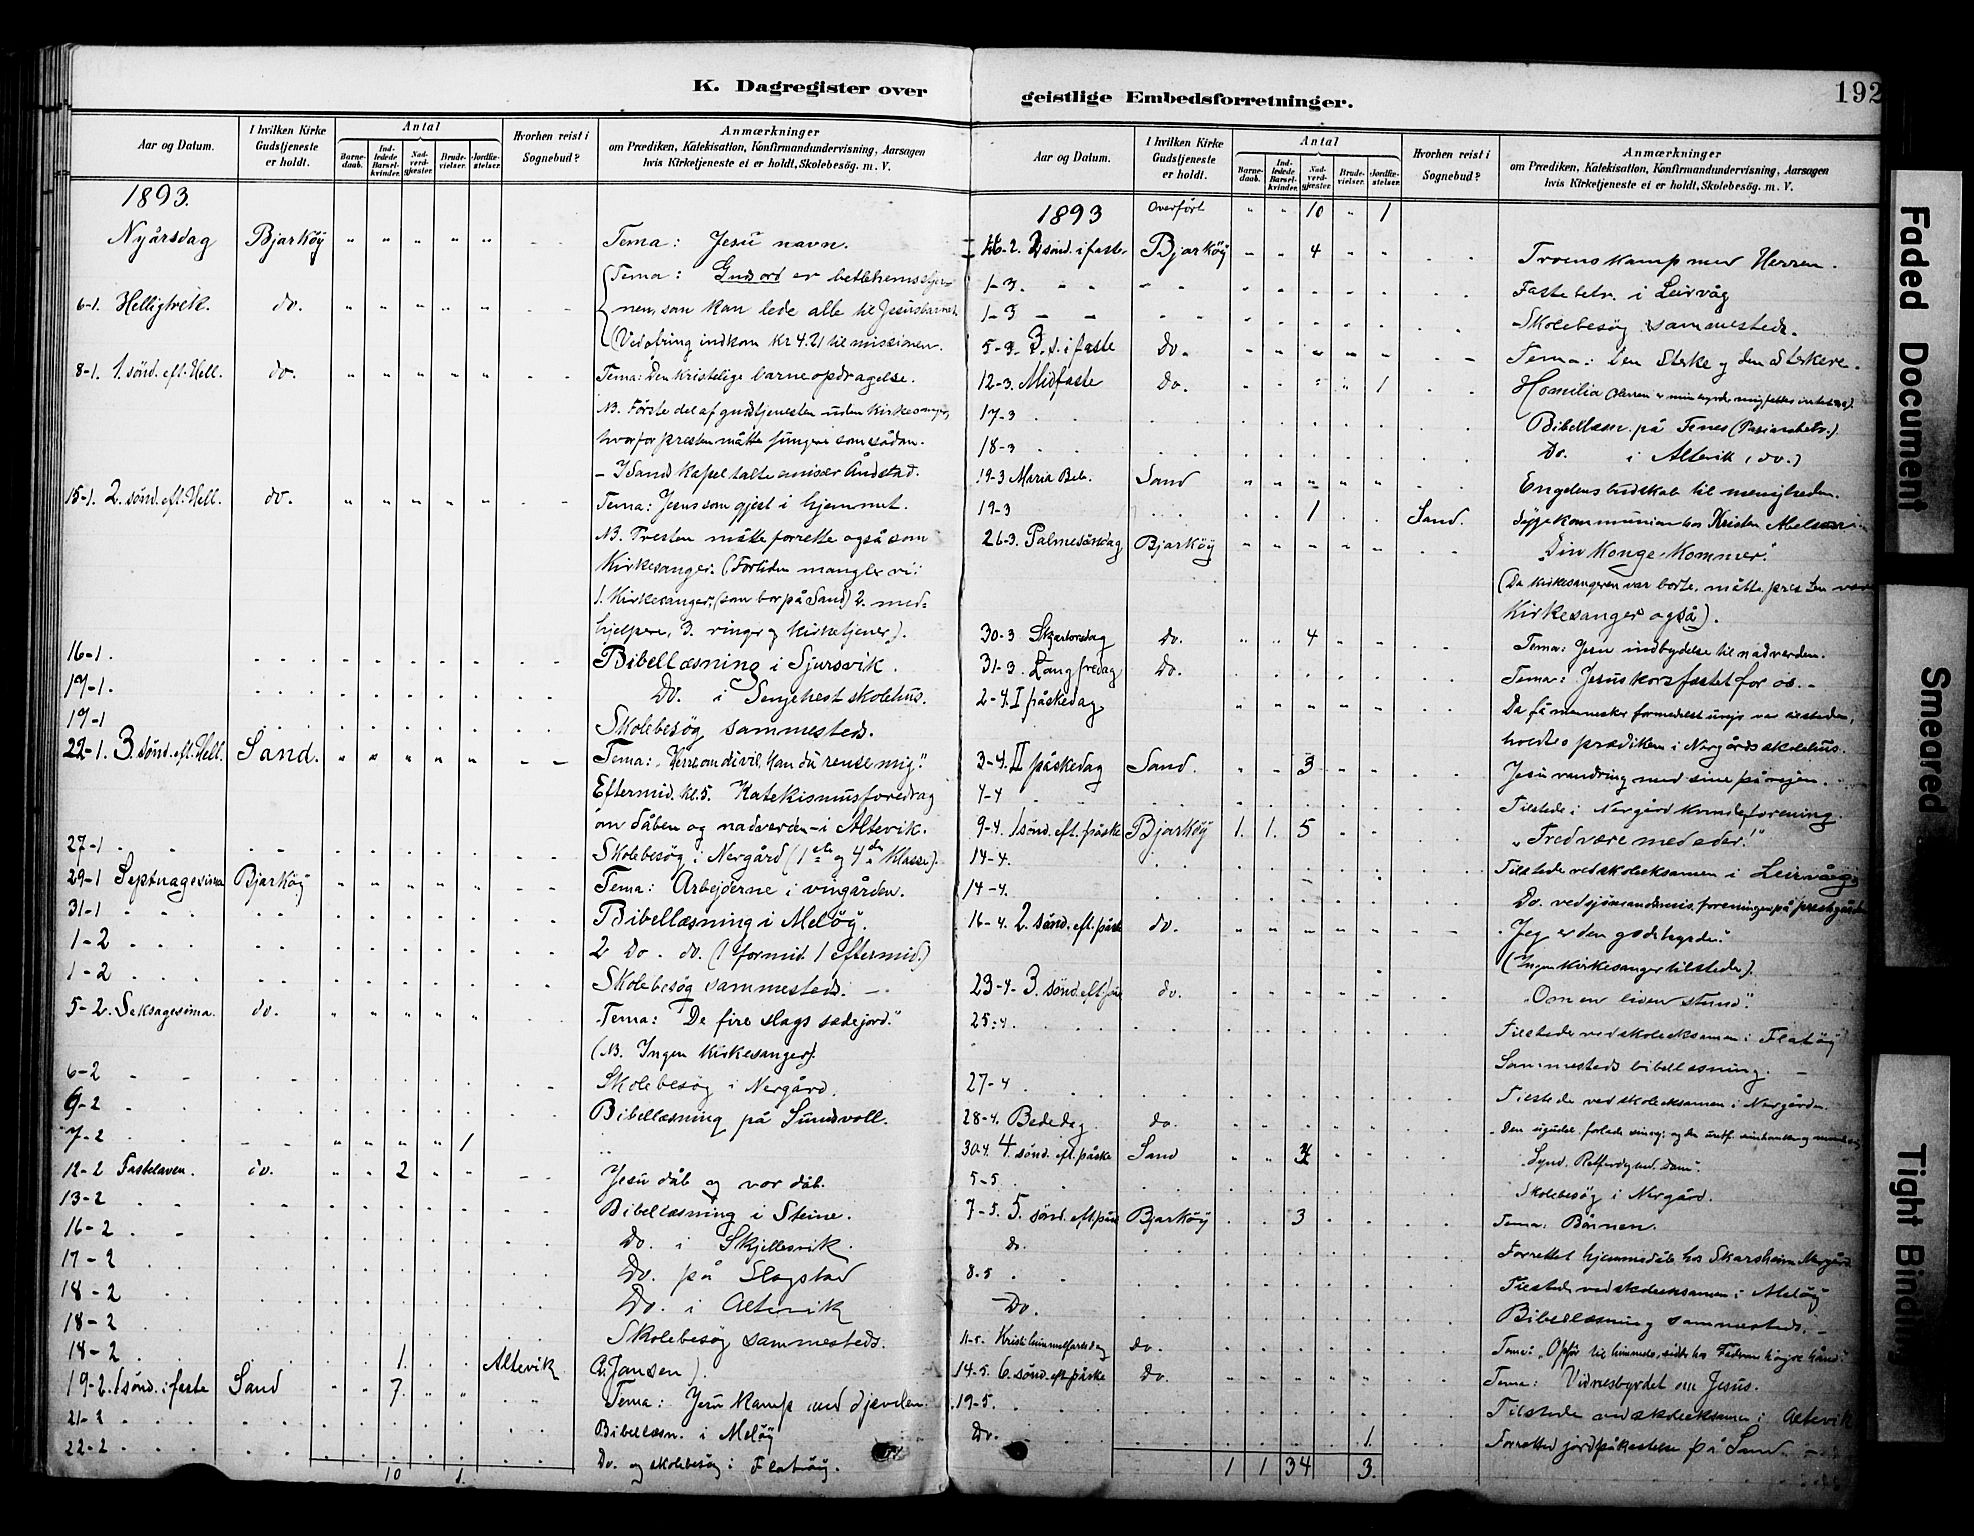 K. Dagregister over
Aar og Datum.
I hvilken Kirke Gudstjeneste er holdt.
Antal
Barnedaab.
Indledede Barselkvinder.
Nadverdgjester.
Brudevielser.
Jordfæstelser.
Hvorhen reist i Sognebud?
Anmærkninger
om Prædiken, Katekisation, Konfirmandundervisning, Aarsagen
hvis Kirketjeneste ei er holdt, Skolebesög. m. V.
1893.
Nyårsdag Bjarköy " " " " " Tema: Jesu navn.
Tema: Guds ord er betlehemsstjer-
6-1. Helligtrek. do. " " " " " nen, som kan lede alle til Jesusbarnet.
(Ved ofring indkom kr 4.21 til missionen.
8-1. 1. sönd. eft. Hell. do. " " " " " Tema: Den kristelige barneopdragelse.
NB. Förste del af gudstjenesten uden kirkesanger,
hvorfor presten måtte fungere som sådan.
– I Sand kapel talte emissær Åndstad.
15-1. 2. sönd. eft. Hell. do. " " " " " Tema: Jesus som gjest i hjemmet.
NB. Presten måtte forrette også som
Kirkesanger. (Fortiden mangler vi:
1. Kirkesanger, (som bor på Sand) 2. med-
hjelpere, 3. ringer og kirketjener).
16-1. Bibellæsning i Sjursvik.
17-1. Do. i Sengehest skolehus.
17-1 Skolebesög sammesteds.
22-1. 3 sönd. eft. Hell. Sand. " " " " " Tema: „Herre om du vil, kan du rense mig."
Eftermid. kl. 5. Katekismusforedrag
om dåben og nadverden i Altevik.
27-1 Skolebesög i Nergård (1ste og 4de klasse).
29-1 Septuagesima Bjarköy " " " " " Tema: Arbejderne i vingården.
31-1 Bibellæsning i Melöy.
1-2 2 Do. do. (1 formid. 1 eftermid.)
1-2 Skolebesög sammesteds. –
5-2. Seksagesima. do. " " " " " Tema: "De fire slags sædejord."
(NB. Ingen Kirkesanger).
6-2 Skolebesög i Nergård.
6-2 Bibellæsning på Sundvoll.
7-2 " " " " 1
12-2 Fastelaven. do. " " 2 " " Jesu dåb og vor dåb.
13-2 Bibellæsning i Steine.
16-2 Do. i Skjellesvik.
17-2 Do. på Slagstad
18-2 Do. i Altevik
18-2 Skolebesög sammesteds.
18-2 1. Altevik Jansen).
19-2. 1 sönd. i faste Sand 7. " " Tema: Jesu kamp med djævelen.
21-2 Bibellæsn. i Melöy
22-2 Do. og skolebesög i Flatöy.
10 1.
geistlige Embedsforretninger.
192
Aar og Datum.
I hvilken Kirke Gudstjeneste er holdt.
Antal
Barnedaab.
Indledede Barselkvinder.
Nadverdgjester.
Brudevielser.
Jordfæstelser.
Hvorhen reist i Sognebud?
Anmærkninger
om Prædiken, Katekisation, Konfirmandundervisning, Aarsagen
hvis Kirketjeneste ei er holdt, Skolebesög. m. V.
1893 Overfört " " 10 " 1
26-2. 2 sönd. i faste Bjarköy " " 4 " " Troens kamp med Herren.
1-3. Fastebetr. i Leirvåg
1-3 Skolebesög sammesteds.
5-3. 3. s. i faste Do. " " " " " Tema: Den Sterke og den Sterkere.
12-3. Midfaste Do. " " " " 1 Homilia
17-3 Bibellæsn. på Fenes (Passionsbetr.)
18-3 Do. i Altevik (do.)
19-3 Maria Beb. Sand " " " " Engelens budskab til menigheden.
19-3 1 Sand. Sygekommunion hos Kristen
26-3. Palmesöndag Bjarköy " " " " " „Din Konge kommer."
(Da kirkesangeren var borte, måtte presten være
Kirkesanger også).
30-3 Skjærtorsdag Do. " " 4 Tema: Jesu indbydelse til nadverden.
31-3. Langfredag Do. Tema: Jesus korsfæstet for os. –
2-4. I påskedag " " " " " Da få mennesker formedelst uvejr var tilstede,
holdtes prædiken i Nergårds skolehus.
3-4. II påskedag Sand. " " 3 " " Jesu vandring med sine på vejen.
4-4 Tilstede i Nergård kvindeforening.
9-4. 1 sönd. eft. påske Bjarköy 1. 1. 5 „Fred være med eder!"
14-4. Tilstede ved skoleeksamen i Leirvåg
14-4. Do. ved på prestgården
16-4. 2. sönd. eft. påske do. " " " " " „Jeg er den gode hyrde."
(Ingen kirkesanger tilstede).
23-4 3 sönd. eft. påske do. " " " " " „Om en liden stund."
25-4. Tilstede ved skoleeksamen i Flatöy
Sammesteds bibellæsning. –
27-4. Tilstede ved skoleeksamen i Nergården.
28-4. Bededag do.
30-4. 4. sönd. eft. påske Sand " " " " „Synd. Retferdighed. Dom".
5-5 Skolebesög i Nergård.
7-5. 5. sönd. eft. påske Bjarköy 3 Tema: Bönnen.
do. Forrettet hjemmedåb hos Skarsheim Nergård
8-5 Tilstede ved skoleeksamen i Melöy
Do. Bibellæsning sammesteds. –
11-5. Kristi himmelfartsdag do. Tema:
14-5. 6. sönd. eft. påske Do. " " " " " Tema: Vidnesbyrdet om Jesus.
19-5. Tilstede ved skoleeksamen i Altevik
Do. 1. Forretted jordpåkastelse på Sand
1 1 34 3.
Faded Document
Smeared
Tight Binding